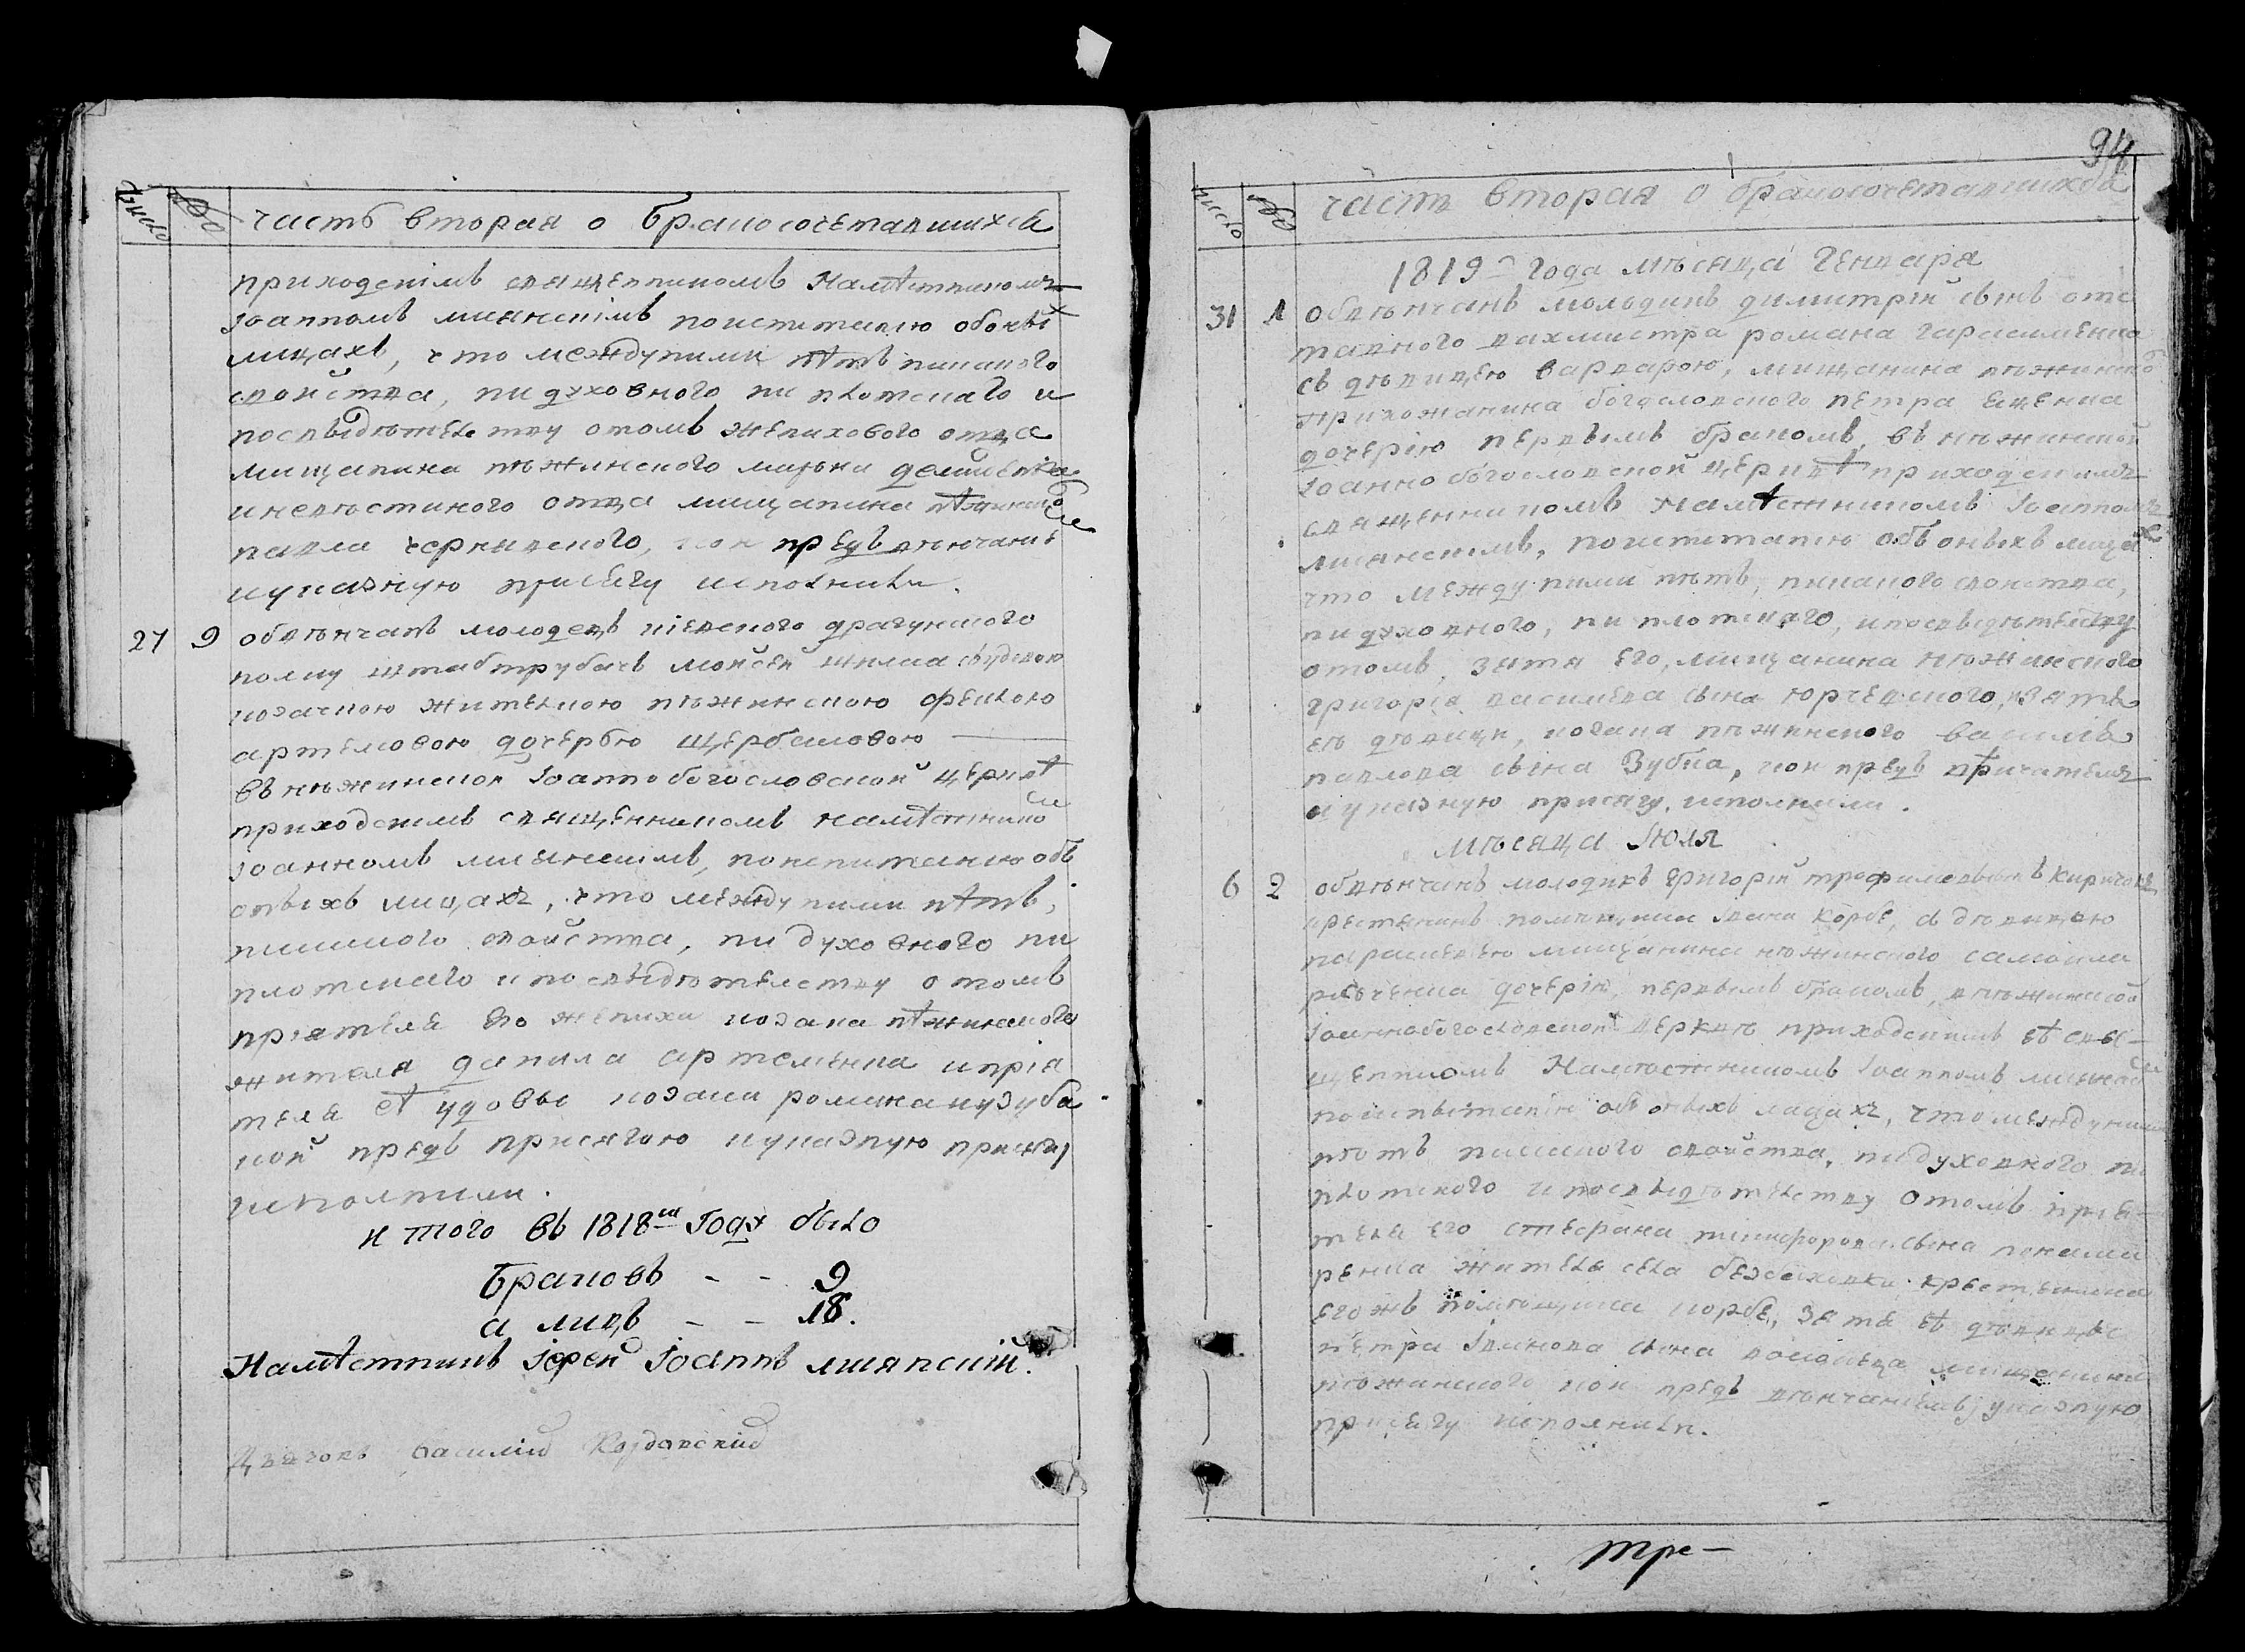 Число
№
часть вторая о бракосочетавшихся
приходскімъ священникомъ Намѣстникомъ
Іоанномъ по испитанію обонвъ
лицахъ, что междуними нѣтъ никакого
свойства, ни духовного ни плотскаго и
посвыдѣтелству отомъ женихового отца
мищанина нѣжинского
иневѣстиного отца мищанина нѣжинского
павла чернявского, кои предъ вѣнчаніе
иуказную присягу исполнили.
27 9 обвѣнчанъ молодецъ кіевского драгунского
полку штабтрубачъ мойсей
козачкою жителкою нѣжинскою феклою
артемовою дочерью щербаковою
въ нѣжинской Іоаннобогословской церквѣ
приходскимъ священникомъ намѣстнико
Іоанномъ поиспитанію объ
онвыхъ лицахъ, что между ними нѣтъ,
никакого свойства, ни духовного ни
плотскаго и посвыдѣтелству отомъ
пріятеля его жениха козака нѣжинского
жителя данила артеменка ипрія
теля еѣ удовы козака романа кузуба
кои предъ присягою иуказную присягу
исполнили.
итого въ 1818мъ Году было
браковъ - - 9
а лицъ - - 18.
Намѣстникъ Іерей Іоаннъ
Дьячокъ Василій
94
Число
№
часть вторая о бракосочетавшихся
1819 года мѣсяца Генваря
31 1 обвѣнчанъ молодикъ димитрій сынъ отс
тавного вахмистра романа гарасименка
съ дѣвицею варварою, мищанина нѣжинско
прихожанина богословского петра еценка
дочерію первымъ бракомъ, въ нѣжинской
Іоаннобогословской церквѣ приходскимъ
священникомъ намѣстникомъ Іоанномъ
поиспитанію объ онвыхъ лица
что между ними нѣтъ, никакого свойства,
ни духовного, ни плотскаго, ипосвыдѣтелству
отомъ, зятя его, мищанина нѣжинского
григорія василіева сына юрчевского, изятя
еѣ дѣвици, козака нѣжинского василія
павлова сына Зубка, кои предъ
иуказную присягу, исполнили.
мѣсяца Іюля
6 2 обвѣнчанъ молодикъ григорій
крестянинъ помѣщика Ивана Корбе, съ дѣвицею
параскевею мищанина нѣжинского самоила
дочерію, первымъ бракомъ, внѣжинской
Іоаннобогословской церквѣ приходскимъ еѣ свя-
щенникомъ Намѣстникомъ Іоанномъ
поиспытанію объ онвыхъ лицахъ, что междуними
нѣтъ никакого свойства, ни духовного ни
плотского ипосвыдѣтелству отомъ прія-
теля его стефана никифорова сына
жителя села крестянина
егожъ помѣщика корбе, зятя еѣ дѣвицы
петра Іванова сына мищанина
нѣжинского кои предъ вѣнчаніемъ указную
присягу исполнили.
тре-